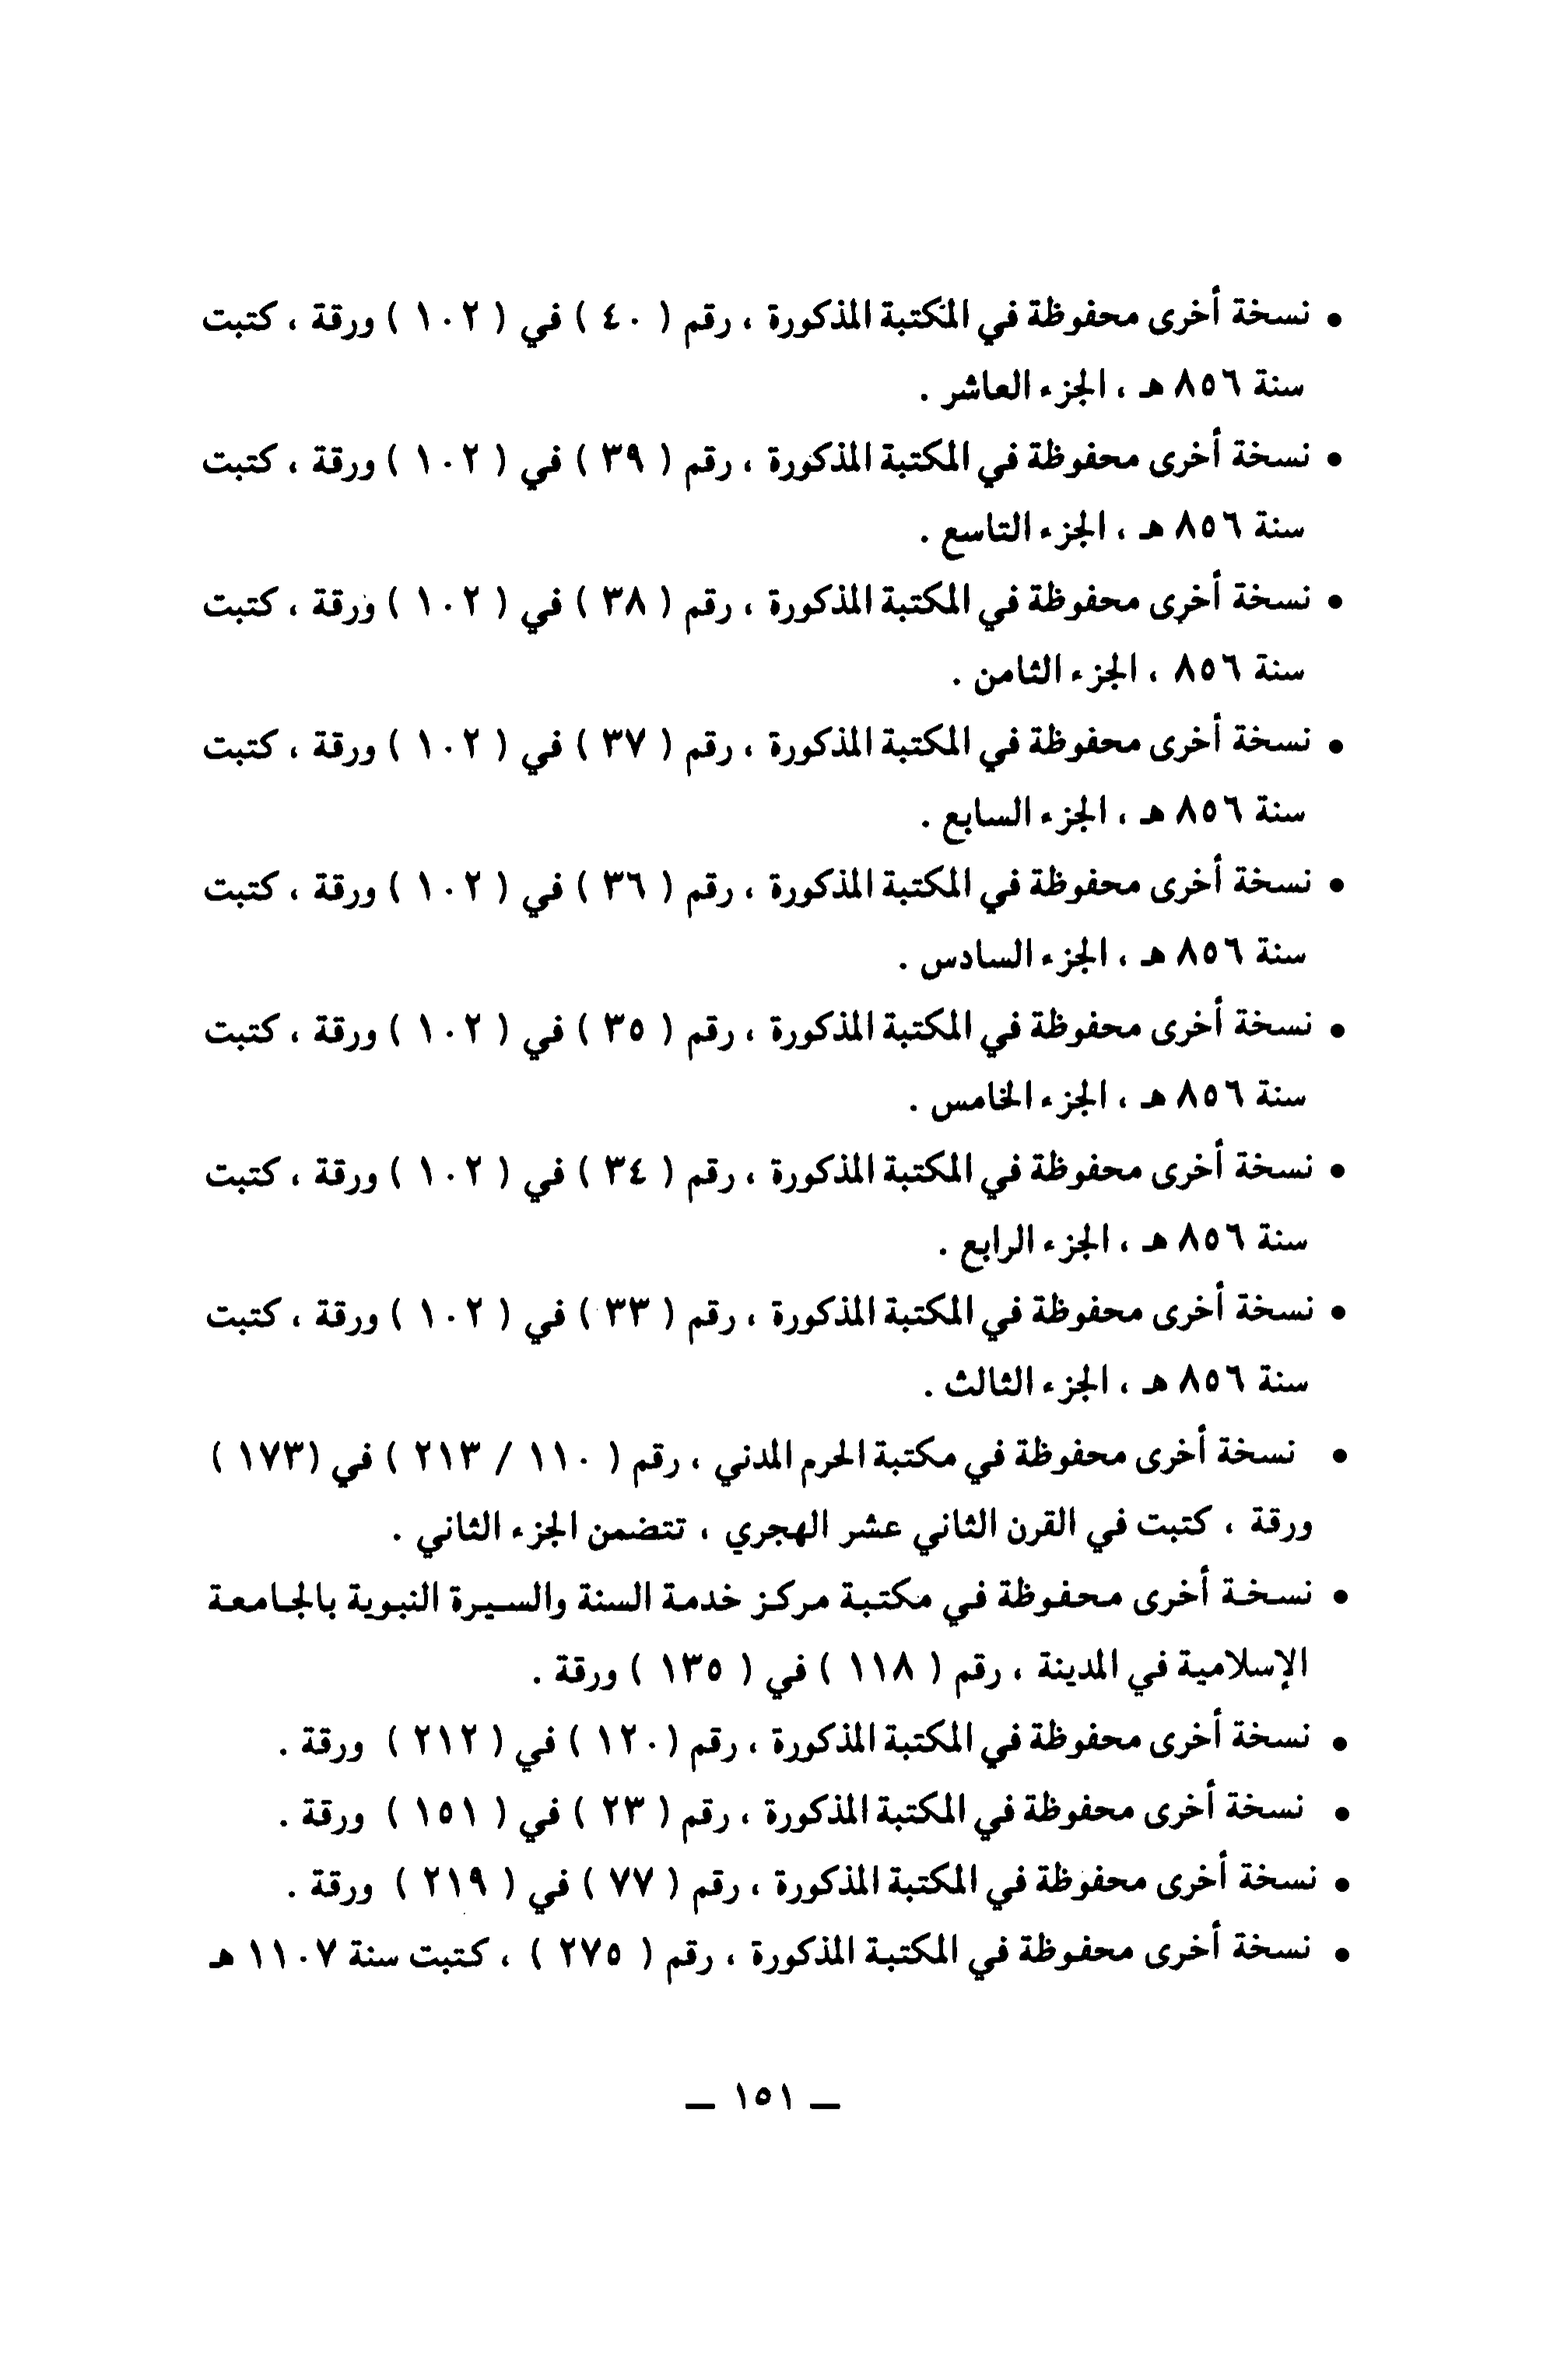 • نسخة أخرى محفوظة في المكتبة المذكورة ، رقم ( ٤٠ ) في ( ١٠٢ ) ورقة ، كتبت
سنة ٨٥٦ هـ ، الجزء العاشر .
• نسخة أخرى محفوظة في المكتبة المذكورة ، رقم ( ٣٩ ) في ( ١٠٢ ) ورقة ، كتبت
سنة ٨٥٦ هـ ، الجزء التاسع .
• نسخة أخرى محفوظة في المكتبة المذكورة ، رقم ( ٣٨ ) في ( ١٠٢ ) ورقة ، كتبت
سنة ٨٥٦ ، الجزء الثامن .
• نسخة أخرى محفوظة في المكتبة المذكورة ، رقم ( ٣٧ ) في ( ١٠٢ ) ورقة ، كتبت
سنة ٨٥٦ هـ ، الجزء السابع .
• نسخة أخرى محفوظة في المكتبة المذكورة ، رقم ( ٣٦ ) في ( ١٠٢ ) ورقة ، كتبت
سنة ٨٥٦ هـ ، الجزء السادس .
• نسخة أخرى محفوظة في المكتبة المذكورة ، رقم ( ٣٥ ) في ( ١٠٢ ) ورقة ، كتبت
سنة ٨٥٦ هـ ، الجزء الخامس .
• نسخة أخرى محفوظة في المكتبة المذكورة ، رقم ( ٣٤ ) في ( ١٠٢ ) ورقة ، كتبت
سنة ٨٥٦ هـ ، الجزء الرابع .
• نسخة أخرى محفوظة في المكتبة المذكورة ، رقم ( ٣٣ ) في ( ١٠٢ ) ورقة ، كتبت
سنة ٨٥٦ هـ ، الجزء الثالث .
• نسخة أخرى محفوظة في مكتبة الحرم المدني ، رقم ( ١١٠ / ٢١٣ ) في (١٧٣ )
ورقة ، كتبت في القرن الثاني عشر الهجري ، تتضمن الجزء الثاني .
• نسخة أخرى محفوظة في مكتبة مركز خدمة السنة والسيرة النبوية بالجامعة
الإسلامية في المدينة ، رقم ( ١١٨ ) في ( ١٣٥ ) ورقة .
• نسخة أخرى محفوظة في المكتبة المذكورة ، رقم (١٢٠ ) في ( ٢١٢ ) ورقة .
• نسخة أخرى محفوظة في المكتبة المذكورة ، رقم ( ٢٣ ) في ( ١٥١ ) ورقة .
• نسخة أخرى محفوظة في المكتبة المذكورة ، رقم ( ٧٧ ) في ( ٢١٩ ) ورقة .
• نسخة أخرى محفوظة في المكتبة المذكورة ، رقم ( ٢٧٥ ) ، كتبت سنة ١١٠٧ هـ
— ١٥١ —